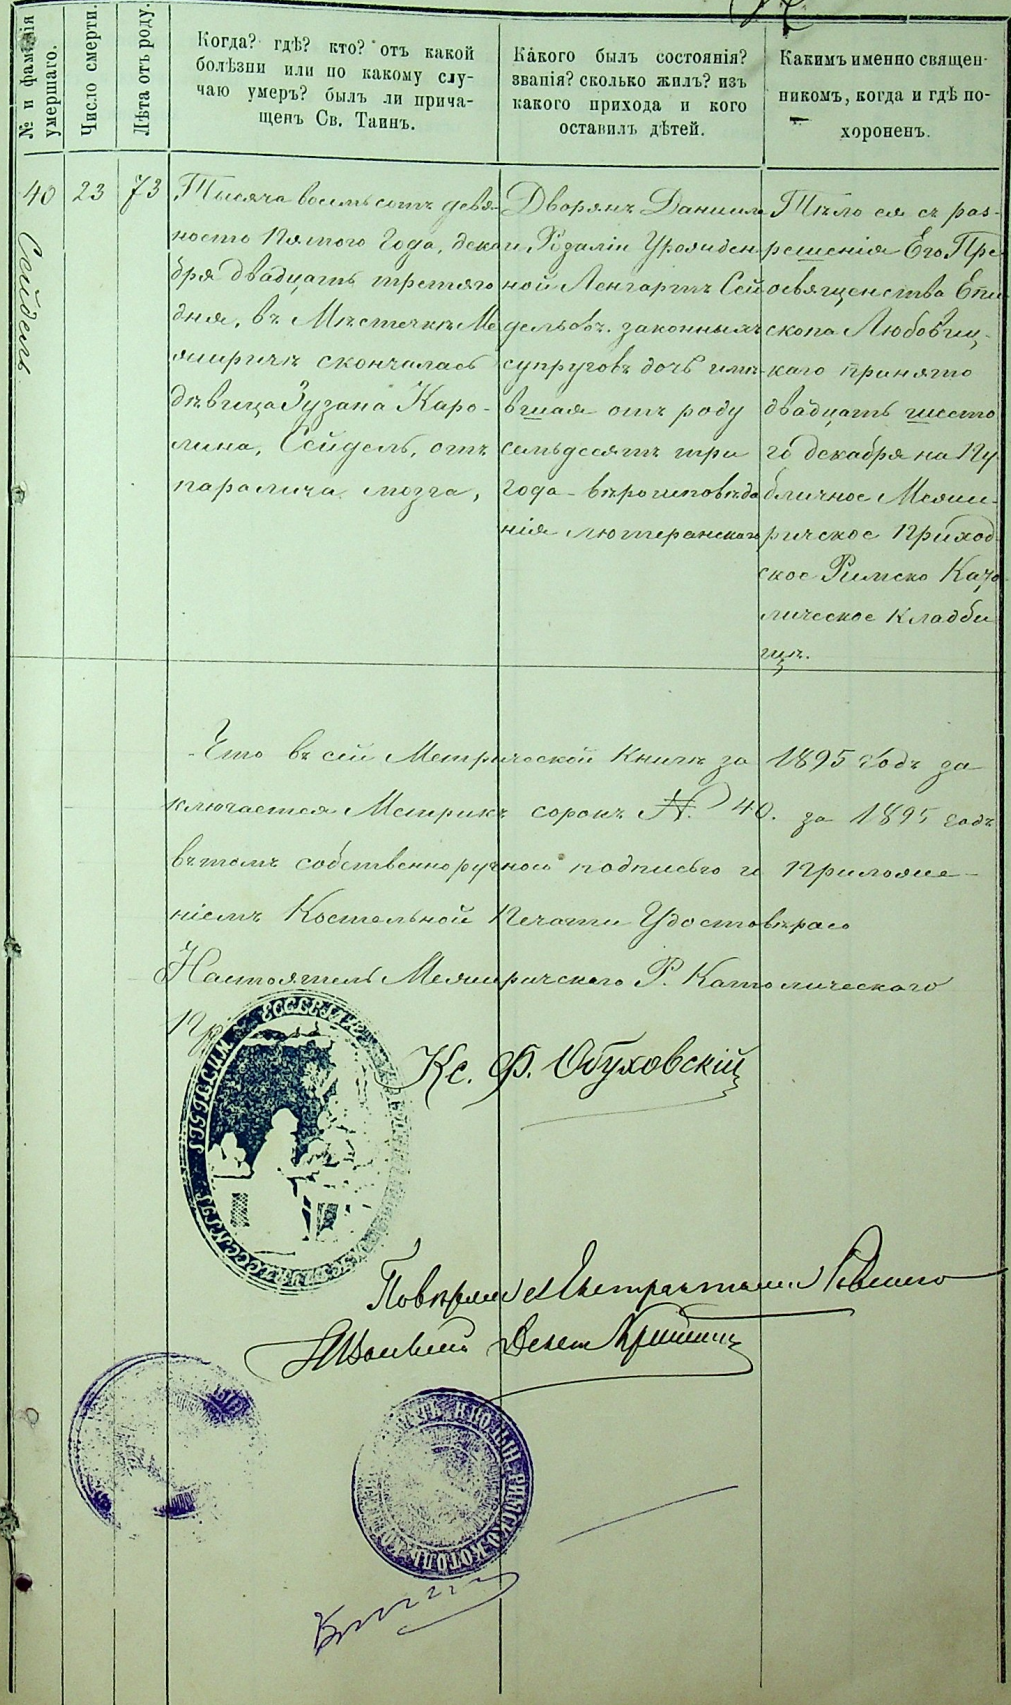 № и фамилія умершаго.
Число смерти.
Лѣта отъ роду.
Когда? гдѣ? кто? отъ какой
болѣзни или по какому слу-
чаю умеръ? былъ ли прича-
щенъ Св. Таинъ.
Какого былъ состоянія?
званія? сколько жилъ? изъ
какого прихода и кого
оставилъ дѣтей.
Какимъ именно священ-
никомъ, когда и гдѣ по-
хороненъ.
40
Сейдель
23
73
Тысяча восемьсотъ девя-
ность пятого года, дека
бря двадцать третяго
дня, въ Мѣстечкѣ Ме
жиричѣ скончалась
дѣвица Зузана Каро-
лина, Сейдель, отъ
паралича мозга,
Дворянъ Даниила
и Розаліи Урожден
ной Ленгартъ Сей
дельовъ законныхъ
супруговъ дочь имѣ-
вшая отъ роду
семьдесятъ три
года - вѣроисповѣда
нія лютеранскаго
Тѣло ея съ раз-
решенія Его Пре
освященства Епи
скопа Любовиц-
каго принято
двадцать шесто
го декабря на Пу
бличное Межи-
ричское Приход
ское Римско Като
лическое кладби
щѣ.
Что въ сей Метрической Книгѣ за 1895 годъ за
ключается Метрикъ сорокъ N. 40. за 1895 годъ
въ томъ собственноручною подписью и приложе-
ніемъ Костельной Печати Удостовѣраю
Настоятель Межиричскаго Р. Католическаго
Пр
Кс. Ф. Обуховскій
SIGILLUM ECCLESIAE
РИМСКО-КАТОЛ